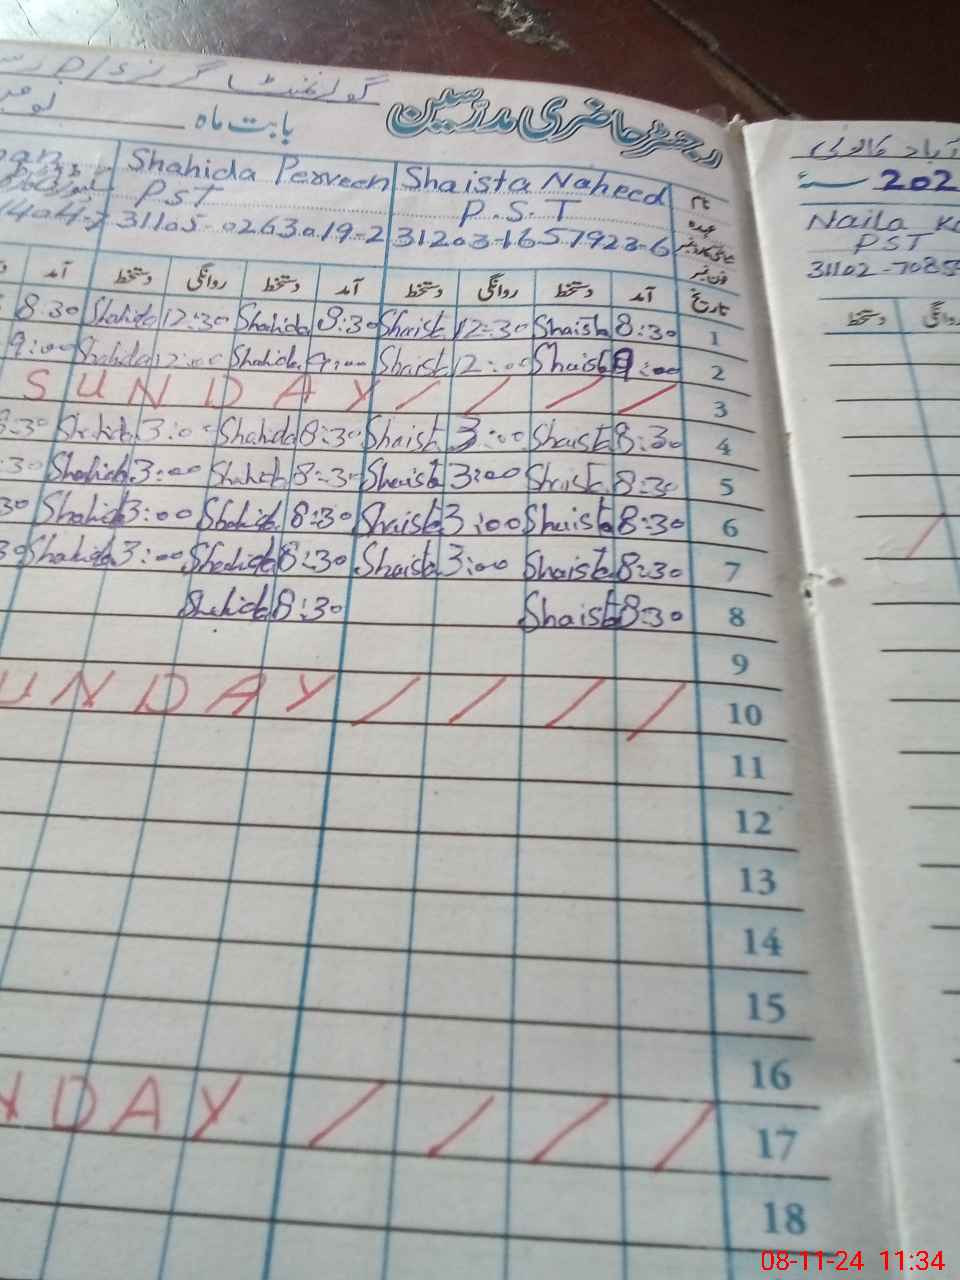 رجسٹر حاضری مدرسین
بابت ماہ
Shaista Naheed
P.S.T
31203-1657923-6
Shahida Perveen
PST
31105-0263019-2
نام
عہدہ
تاریخ آمد دستخط روانگی دستخط آمد دستخط روانگی دستخط آمد
1 8:30 Shaista 12:30 Shaista 8:30 Shahida 12:30 Shahida 8:30
2 9:00 Shaista 12:00 Shaista 9:00 Shahida 12:00 Shahida 9:00
3 SUNDAY / / / /
4 8:30 Shaista 3:00 Shaista 8:30 Shahida 3:00 Shahida
5 8:30 Shaista 3:00 Shaista 8:30 Shahida 3:00 Shahida
6 8:30 Shaista 3:00 Shaista 8:30 Shahida 3:00 Shahida
7 8:30 Shaista 3:00 Shaista 8:30 Shahida 3:00 Shahida
8 8:30 Shaista 8:30 Shahida
9
10 UNDAY / / / /
11
12
13
14
15
16
17 NDAY / / / /
18
202
Naila
PST
31102-7085
دستخط
08-11-24 11:34